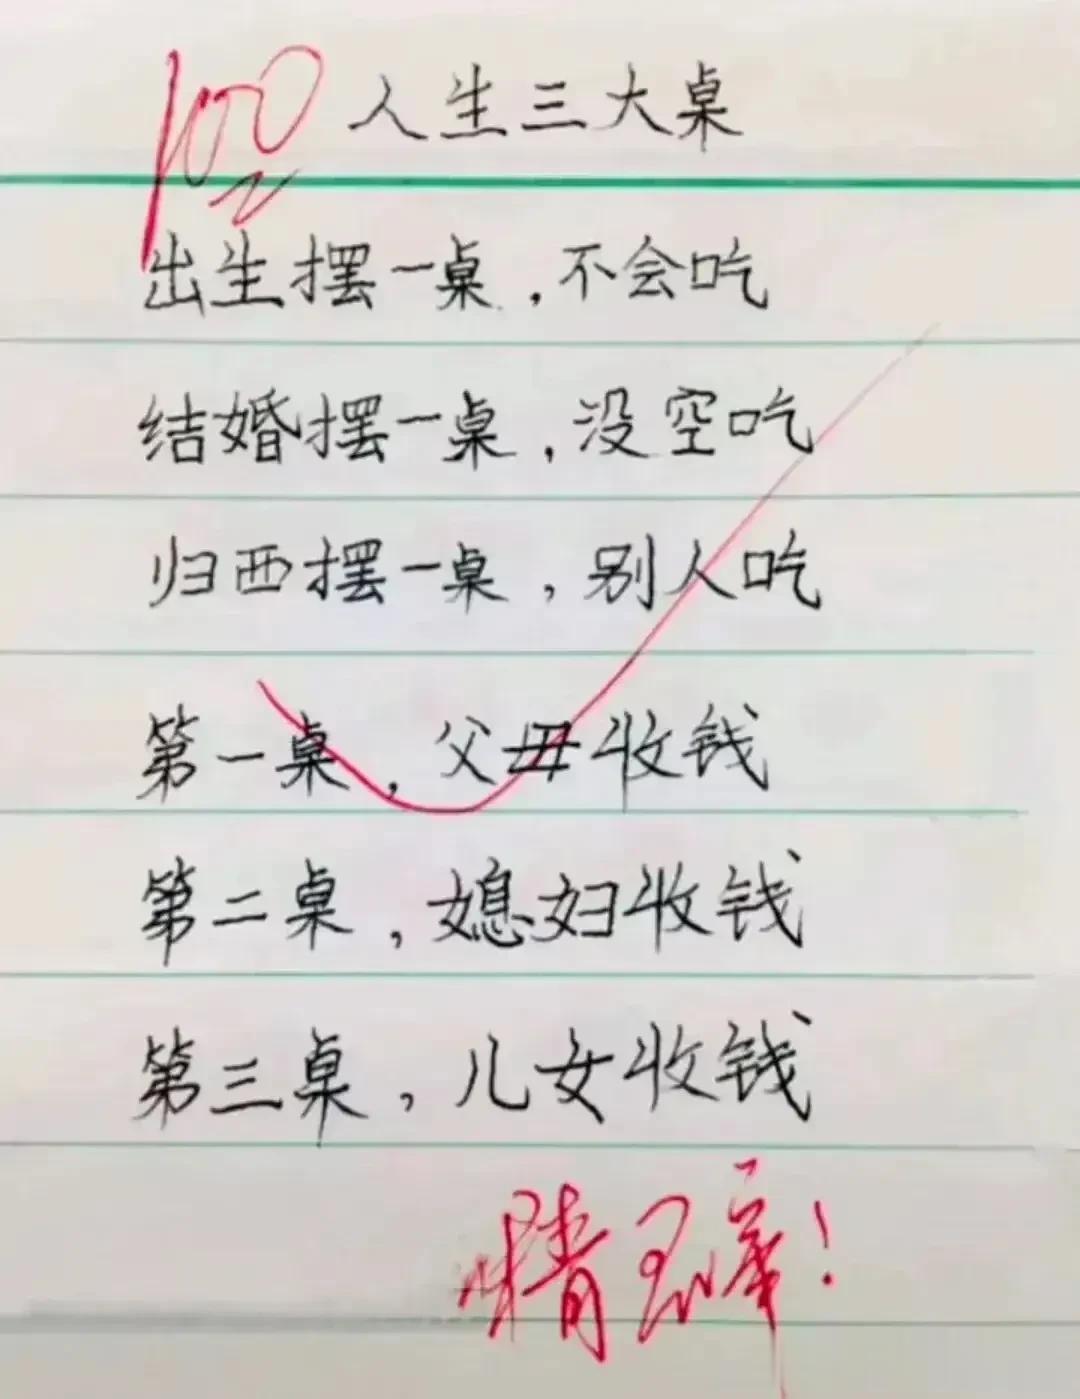 100
人生三大桌
出生摆一桌,不会吃
结婚摆一桌,没空吃
归西摆一桌,别人吃
第一桌,父毋收钱
第二桌,媳妇收钱
第三桌,儿女收钱
精辟!